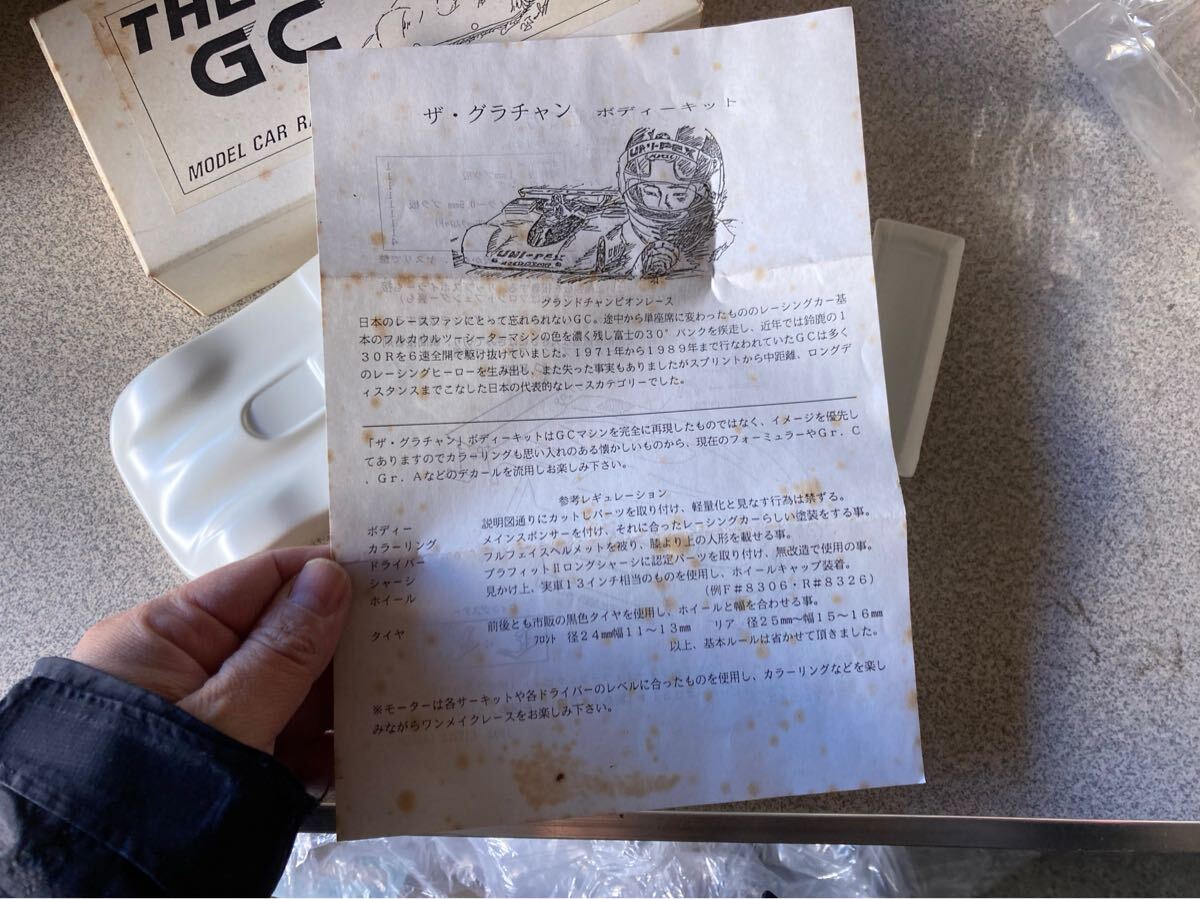 THE
GC
MODEL CAR RA
ザ・グラチャン ボディーキット
UNI-PEX
グランドチャンピオンレース
日本のレースファンにとって忘れられないGC。途中から単座席に変わったもののレーシングカー基
本のフルカウルツーシーターマシンの色を濃く残し富士の30°バンクを疾走し、近年では鈴鹿の1
30Rを6速全開で駆け抜けていました。1971年から1989年まで行なわれていたGCは多く
のレーシングヒーローを生み出し、また失った事実もありましたがスプリントから中距離、ロングデ
ィスタンスまでこなした日本の代表的なレースカテゴリーでした。
「ザ・グラチャン」ボディーキットはGCマシンを完全に再現したものではなく、イメージを優先し
てありますのでカラーリングも思い入れのある懐かしいものから、現在のフォーミュラーやGr.C
、Gr.Aなどのデカールを流用しお楽しみ下さい。
参考レギュレーション
ボディー 説明図通りにカットしパーツを取り付け、軽量化と見なす行為は禁ずる。
カラーリング メインスポンサーを付け、それに合ったレーシングカーらしい塗装をする事。
ドライバー フルフェイスヘルメットを被り、膝より上の人形を載せる事。
シャーシ プラフィットⅡロングシャーシに認定パーツを取り付け、無改造で使用の事。
ホイール 見かけ上、実車13インチ相当のものを使用し、ホイールキャップ装着。
(例F#8306・R#8326)
タイヤ 前後とも市販の黒色タイヤを使用し、ホイールと幅を合わせる事。
フロント 径24㎜幅11~13㎜ リア 径25㎜~幅15~16㎜
以上、基本ルールは省かせて頂きました。
※モーターは各サーキットや各ドライバーのレベルに合ったものを使用し、カラーリングなどを楽し
みながらワンメイクレースをお楽しみ下さい。